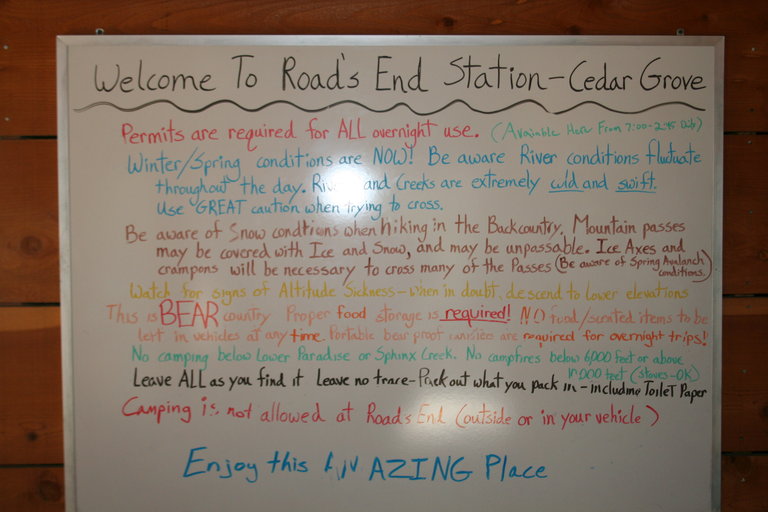 Welcome To Road's End Station - Cedar Grove
Permits are required for ALL overnight use. (Available Here From 7:00-2:45 Daily)
Winter/Spring conditions are NOW! Be aware River conditions flutuate
throughout the day. and Creeks are extremely cold and swift.
Use GREAT caution when trying to cross.
Be aware of Snow condtions when hiking in the Backcountry. Mountain passes
may be covered with Ice and Snow, and may be unpassable. Ice Axes and
crampons will be necessary to cross many of the Passes (Be aware of Spring Avalanch
conditions.)
Watch for signs of Altitude Sickness - when in doubt, descend to lower elevations
This is BEAR country Proper food storage is required! NO food/scented items to be
left in vehicles at any time. Portable bear proof canisters are required for overnight trips!!
No camping below Lower Paradise or Sphinx Creek. No campfires below 6,000 feet or above
10,000 feet (stoves-OK)
Leave ALL as you find it Leave no trace - Pack out what you pack in - including Toilet Paper
Camping is not allowed at Road's End (outside or in your vehicle)
Enjoy this AMAZING Place